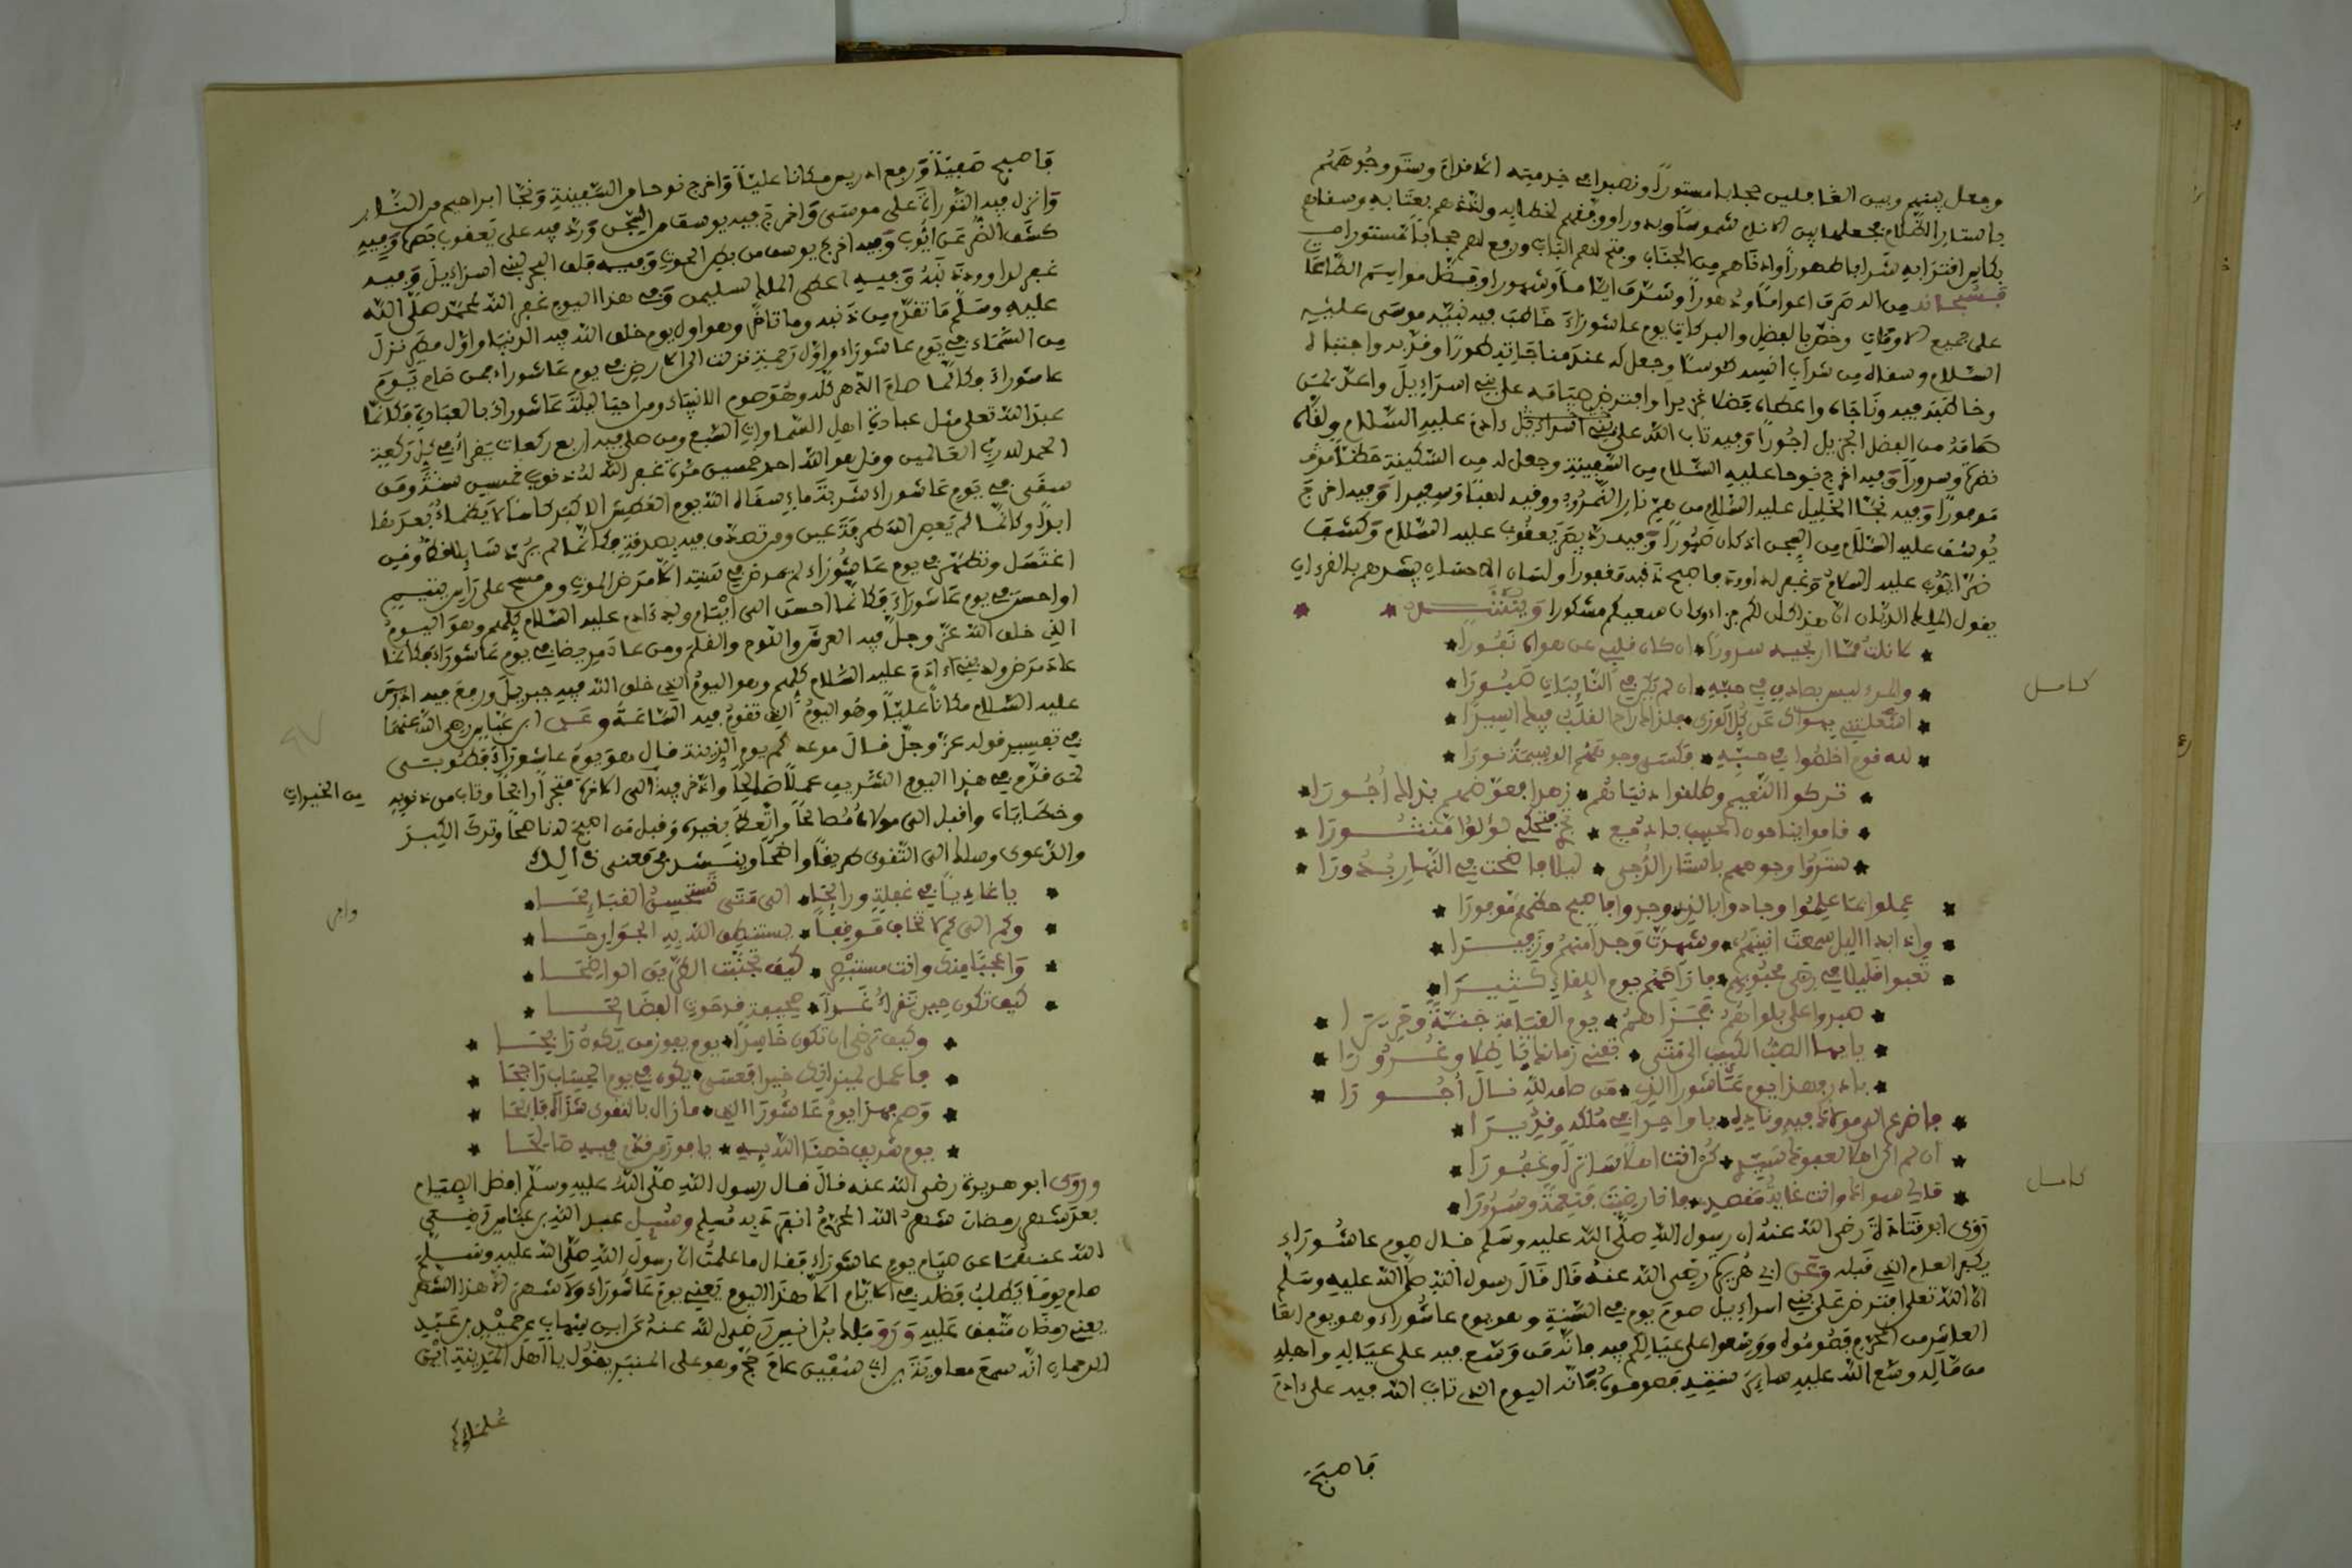 وجعل بينهم وبين الغافلين حجابا مستورا ونصبوا في خدمته الاقدام وستر وجوههم
باستار الظلام فجعلها بين الانام شموسا وبدورا ووفقهم لخطابه ولذذهم بعتابه وسقاهم
بكاس اقترابه شرابا طهورا وادناهم من الجناب وفتح لهم الباب ورفع لهم حجابا مستورا
فسبحانه من اله صرف اعواما ودهورا وشرف اياما وشهورا وفضل مواسم الطاعات
على جميع الاوقات وخص بالفضل والبركات يوم عاشوراء خاطب فيه نبيه موسى عليه
السلام وسقاه من شراب انسه كؤوسا وجعل له عند مناجاته طورا وقربه واجتباه
وخاطبه فيه وناجاه واعطاه فضلا غزيرا وافترض صيامه على بني اسراءيل واعد لمن
صامه من الفضل الجزيل اجورا وفيه تاب الله على ءادم عليه السلام ولقاه
نضرة وسرورا وفيه اخرج نوحا عليه السلام من السفينة وجعل له من السكينة حظا
موفورا وفيه نجا الخليل عليه السلام من نار النمرود ووقيه لهبا وسعيرا وفيه اخرج
يوسف عليه السلام من السجن اذ كان صبورا وفيه رد بصر يعقوب عليه السلام وكشف
ضر ايوب عليه السلام وغفر لداوود فاصبح ذنبه مغفورا ولسان الاحسان يبشرهم بالقرءان
يقول الملك الديان ان هذا كان لكم جزاء وكان سعيكم مشكورا وينشد
ما نلت مما ارتجيه سرورا ان كان قلبي عن هواك نفورا
والمرء ليس بصادق في حبه ان لم يكن في النائبات صبورا
كامل
اشغلتني بهواك عن كل الورى فلذاك راح القلب فيك اسيرا
لله قوم اخلصوا في حبه فكسى وجوههم الوسيمة نورا
تركوا النعيم وطلقوا دنياهم زهدا فعوضهم بذلك اجورا
قاموا يناجون الحبيب بادمع تجري فتحكي لؤلؤا منثورا
ستروا وجوههم باستار الدجى ليلا فاضحت في النهار بدورا
عملوا بما علموا وجادوا بالذي وجدوا فاصبح حظهم موفورا
واذا بدا الليل سمعت انينهم وشهدت وجدا منهم وزفيرا
تعبوا قليلا في رضى محبوبهم فازاحهم يوم اللقاء كثيرا
صبروا على بلواهم فجزاهم يوم القيامة جنة وحريرا
يا ايها الصب الكئيب الى متى تفني زمانك باطلا وغرورا
بادر فهذا يوم عاشورا الذي من صامه لله نال اجورا
فاضرع الى مولاك فيه وناده يا واحدا في ملكه وقديرا
ان لم اكن اهلا لعفوك سيدي كن انت اهلا ساترا وغفورا
كامل
مالي سواك وانت غاية مقصدي
روى ابو قتادة رضي الله عنه ان رسول الله صلى الله عليه وسلم قال صوم عاشوراء
يكفر العام الذي قبله وعن ابي هريرة رضي الله عنه قال قال رسول الله صلى الله عليه وسلم
ان الله تعلى افترض على بني اسراءيل صوم يوم في السنة وهو يوم عاشوراء وهو يوم
العاشر من المحرم فصوموه ووسعوا على عيالكم فيه فانه من وسع فيه على عياله واهله
من ماله وسع الله عليه سائر سنته فصوموه فانه اليوم الذي تاب الله فيه على ءادم
فاصبح
فاصبح صفيا ورفع ادريس مكانا عليا واخرج نوحا من السفينة ونجا ابراهيم من النار
وانزل فيه التوراة على موسى واخرج فيه يوسف من السجن ورد فيه على يعقوب بصره وفيه
كشف الضر عن ايوب وفيه اخرج يونس من بطن الحوت وفيه فلق البحر لبني اسراءيل وفيه
غفر لداوود ذنبه وفيه اعطى الملك لسليمن وفي هذا اليوم غفر الله لمحمد صلى الله
عليه وسلم ما تقدم من ذنبه وما تاخر وهو اول يوم خلق الله فيه الدنيا واول مطر نزل
من السماء في يوم عاشوراء واول رحمة نزلت الى الارض في يوم عاشوراء فمن صام يوم
عاشوراء فكانما صام الدهر كله وهو صوم الانبياء ومن احيا ليلة عاشوراء بالعبادة فكانما
عبد الله تعلى مثل عبادة اهل السماوات السبع ومن صلى فيه اربع ركعات يقرا في كل ركعة
الحمد لله رب العالمين وقل هو الله احد خمسين مرة غفر الله له ذنوب خمسين سنة ومن
سقى في يوم عاشوراء شربة ماء سقاه الله يوم العطش الاكبر كاسا لا يظما بعدها
ابدا وكانما لم يعص الله طرفة عين ومن تصدق فيه بصدقة فكانما لم يرد سائلا قط ومن
اغتسل وتطهر في يوم عاشوراء لم يمرض في سنته الا مرض الموت ومن مسح على راس يتيم
او احسن في يوم عاشوراء فكانما احسن الى ايتام ولد ءادم عليه السلام كلهم وهو اليوم
الذي خلق الله عز وجل فيه العرش واللوح والقلم ومن عاد مريضا في يوم عاشوراء فكانما
عاد مرضى ولد ءادم عليه السلام كلهم وهو اليوم الذي خلق الله فيه جبريل ورفع فيه ادريس
عليه السلام مكانا عليا وهو اليوم الذي تقوم فيه الساعة وعن ابن عباس رضي الله عنهما
في تفسير قوله عز وجل قال موعدكم يوم الزينة قال هو يوم عاشوراء فطوبى
لمن قدم في هذا اليوم الشريف عملا صالحا وادخر فيه الى الاخرة متجرا رابحا وتاب من ذنوبه
من الخيرات
وخطاياه واقبل الى مولاه واتعظ بغيره وقبل من اصبح له ناصحا وترك الكبر
والدعوى وسلك الى التقوى طريقا واضحا وينشد في معنى ذالك
يا غاديا في غفلة ورائحا الى متى تستحسن القبائحا
وكم الى كم لا تخاف موقفا يستنطق الله به الجوارحا
واعجبا منك وانت مبصر كيف تجنبت الطريق الواضحا
كيف تكون حين تقرا غدا صحيفة قد حوت الفضائحا
وكيف ترضى ان تكون خاسرا يوم يفوز من يكون رابحا
فاعمل لميزانك خيرا فعسى يكون في يوم الحساب راجحا
وصم فهذا يوم عاشورا الذي ما زال بالتقوى شذاه فائحا
يوم شريف خصنا الله به يا فوز من قدم فيه صالحا
وروى ابو هريرة رضي الله عنه قال قال رسول الله صلى الله عليه وسلم افضل الصيام
بعد شهر رمضان شهر الله المحرم انفرد به مسلم وسئل عبد الله بن عباس رضي
الله عنهما عن صيام يوم عاشوراء فقال ما علمت ان رسول الله صلى الله عليه وسلم
صام يوما يطلب فضله في الايام الا هذا اليوم يعني يوم عاشوراء ولا شهرا الا هذا الشهر
يعني رمضان متفق عليه وروى مالك بن انس رضي الله عنه عن ابن شهاب عن حميد بن عبد
الرحمان انه سمع معاوية بن ابي سفين عام حج وهو على المنبر يقول يا اهل المدينة اين
علماؤكم